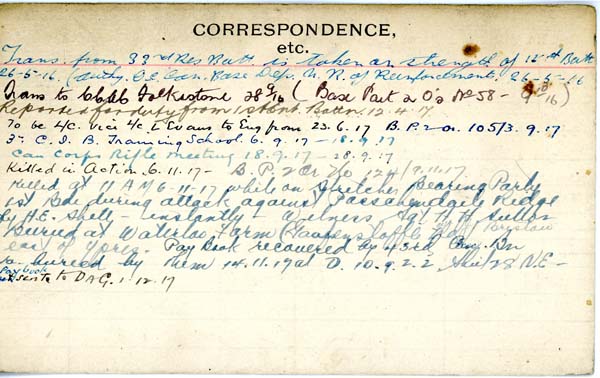 CORRESPONDENCE,
etc.
Trans. from 33rd Res Batt. is taken on strength of Batt
26-5-16. (Authy. O.C. Can. Base Dep. N. R. of Reinforcements. 26-5-16
Trans to Folkestone 28/ /16 (Base Part 2 O's No 58 -
Reported for duty from 1st Ent. Battn. 12.4.17.
To be L/C. vice L/C L Evans to Eng from 23.6.17 B.P.2.O. 105/3.9.17
3rd C.I.B. Training School 6.9.17 - 18.9.17
Can Corps Rifle meeting 18.9.17 - 28.9.17
Killed in Action 6.11.17 - B.P.2 Or No 124/9.11.17.
Killed at 11 AM 6-11-17 while on Stretcher Bearing Party
1st Bde during attack against Passchendaele Ridge
by H.E. Shell - instantly - Witness Sgt H.H. Sutton
Buried at Waterloo Farm
east of Ypres. Pay Book recovered by 43rd Bn
& buried by them 14.11.17 at D.10.9.2.2. Sheet 28 N.E -
Pay book
sent to DAG. 1-12-17